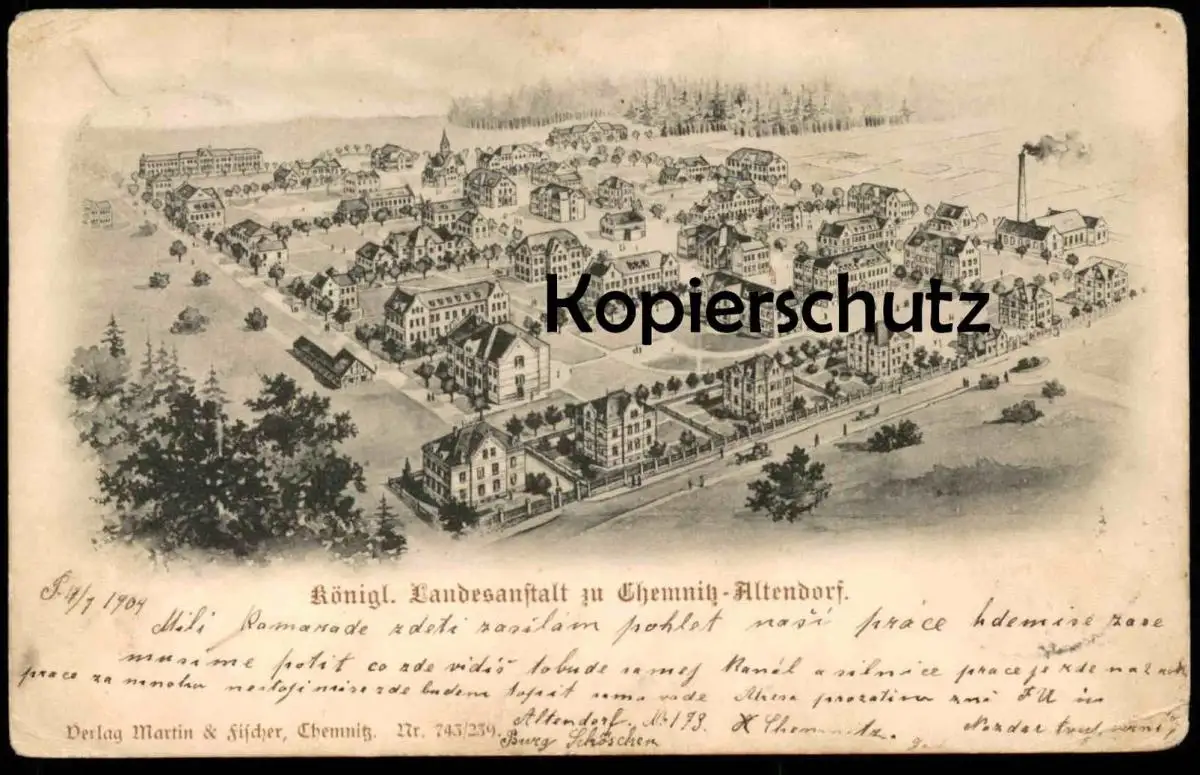 Kopierschutz
Königl. Landesanstalt zu Chemnitz-Altendorf.
1904
Milí Kamaráde zdeti zasílám pohlet naší práce kdemise zase
musíme potit co zde vidíš tobude samej Kanál a silnice prace je zde na
praco za mnoho nestojí mise zde budem topit sama vode prozatim zní
Altendorf. No 173. Chemnitz. Nazdar
Verlag Martin & Fischer, Chemnitz. Nr. 743/239.
Burg Schöschen